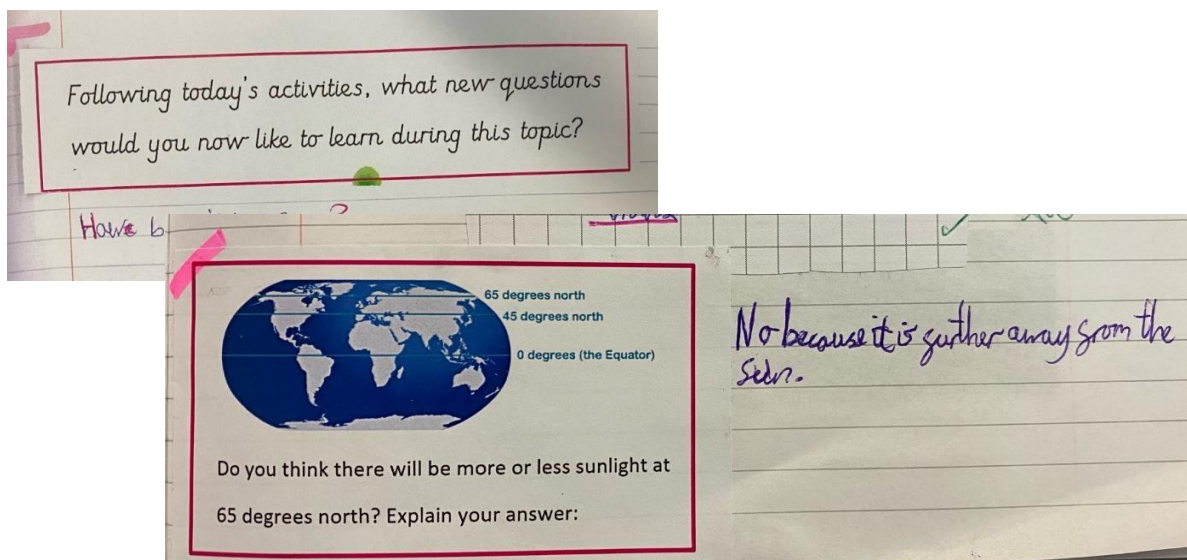 Following today's activities, what new questions
would you now like to learn during this topic?
Have b
65 degrees north
45 degrees north
0 degrees (the Equator)
Do you think there will be more or less sunlight at
65 degrees north? Explain your answer:
No because it is further away from the
sun.